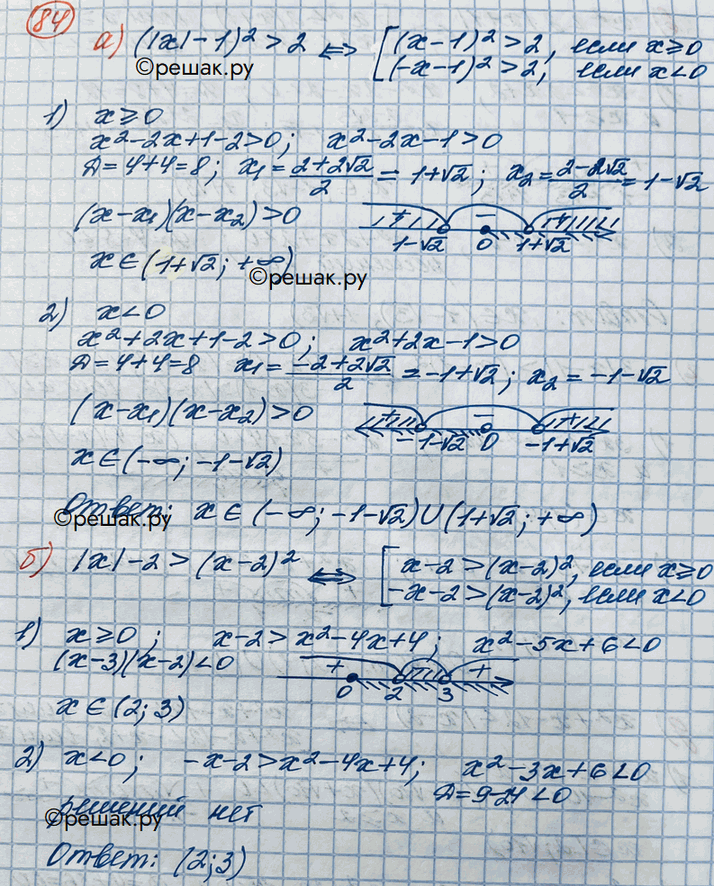 84
а) (|x|-1)² > 2 ⇔ [ (x-1)² > 2, если x ≥ 0
(-x-1)² > 2, если x < 0
©решак.ру
1) x ≥ 0
x²-2x+1-2>0; x²-2x-1>0
D=4+4=8; x₁ = (2+2√2)/2 = 1+√2; x₂ = (2-2√2)/2 = 1-√2
(x-x₁)(x-x₂)>0 + - + 1-√2 0 1+√2
x ∈ (1+√2; +∞)
©решак.ру
2) x<0
x²+2x+1-2>0; x²+2x-1>0
D=4+4=8 x₁ = (-2+2√2)/2 = -1+√2; x₂ = -1-√2
(x-x₁)(x-x₂)>0 + - + -1-√2 0 -1+√2
x ∈ (-∞; -1-√2)
Ответ: x ∈ (-∞; -1-√2) ∪ (1+√2; +∞)
©решак.ру
б) |x|-2 > (x-2)² ⇔ [ x-2 > (x-2)², если x ≥ 0
-x-2 > (x-2)², если x < 0
1) x ≥ 0; x-2 > x²-4x+4; x²-5x+6<0
(x-3)(x-2)<0 + - + 0 2 3
x ∈ (2; 3)
2) x<0; -x-2 > x²-4x+4; x²-3x+6<0
D=9-24<0
решений нет
©решак.ру
Ответ: (2; 3)